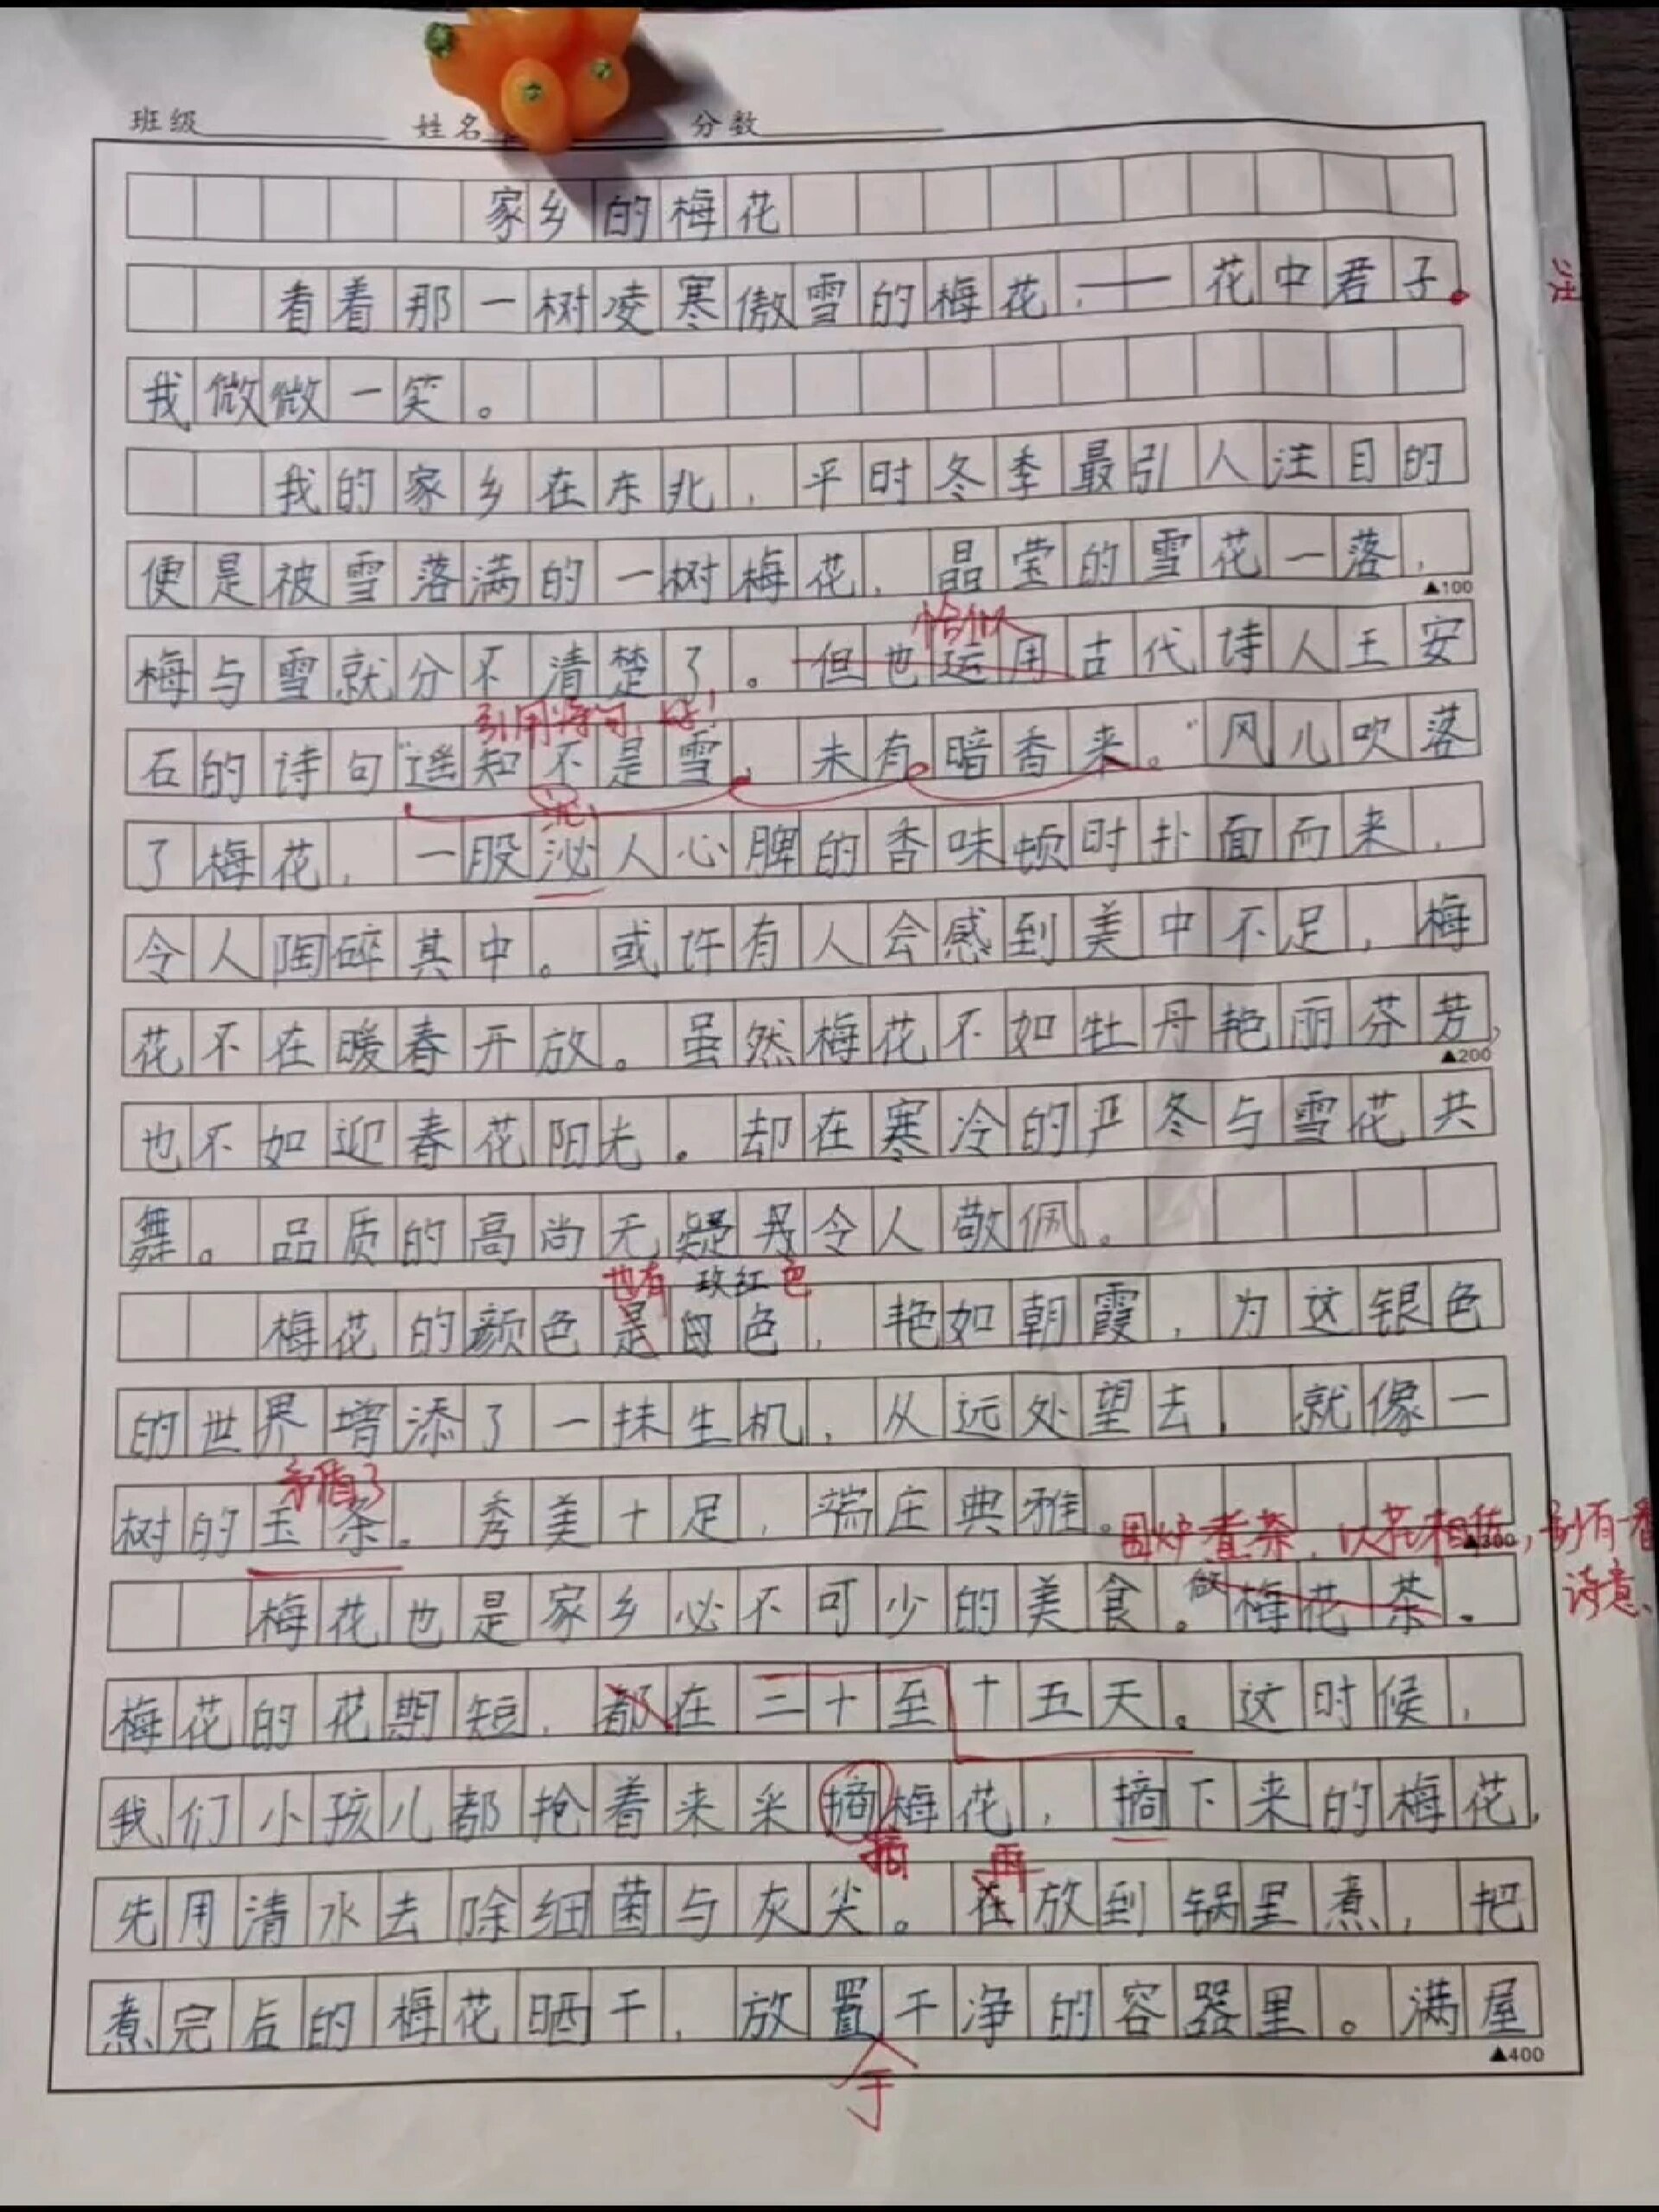 班级 姓名 分数
家乡的梅花
看着那一树凌寒傲雪的梅花，——花中君子。
我微微一笑。
我的家乡在东北，平时冬季最引人注目的
便是被雪落满的一树梅花，晶莹的雪花一落，
▲100
恰似
梅与雪就分不清楚了。但也运用古代诗人王安
引用诗句，好！
石的诗句“遥知不是雪，未有暗香来。”风儿吹落
沁
了梅花，一股泌人心脾的香味顿时扑面而来，
令人陶碎其中。或许有人会感到美中不足，梅
花不在暖春开放。虽然梅花不如牡丹艳丽芬芳，
▲200
也不如迎春花阳光。却在寒冷的严冬与雪花共
舞。品质的高尚无疑令人敬佩。
也有 玫红色
梅花的颜色是白色，艳如朝霞，为这银色
的世界增添了一抹生机，从远处望去，就像一
矛盾了
树的玉条。秀美十足，端庄典雅。
▲300
围炉煮茶，以花相伴，别有一番
诗意、
梅花也是家乡必不可少的美食。做梅花茶。
梅花的花期短，都在二十至十五天。这时候，
我们小孩儿都抢着来采摘梅花，摘下来的梅花，
摘 再
先用清水去除细菌与灰尖。在放到锅里煮，把
煮完后的梅花晒干，放置干净的容器里。满屋
▲400
于